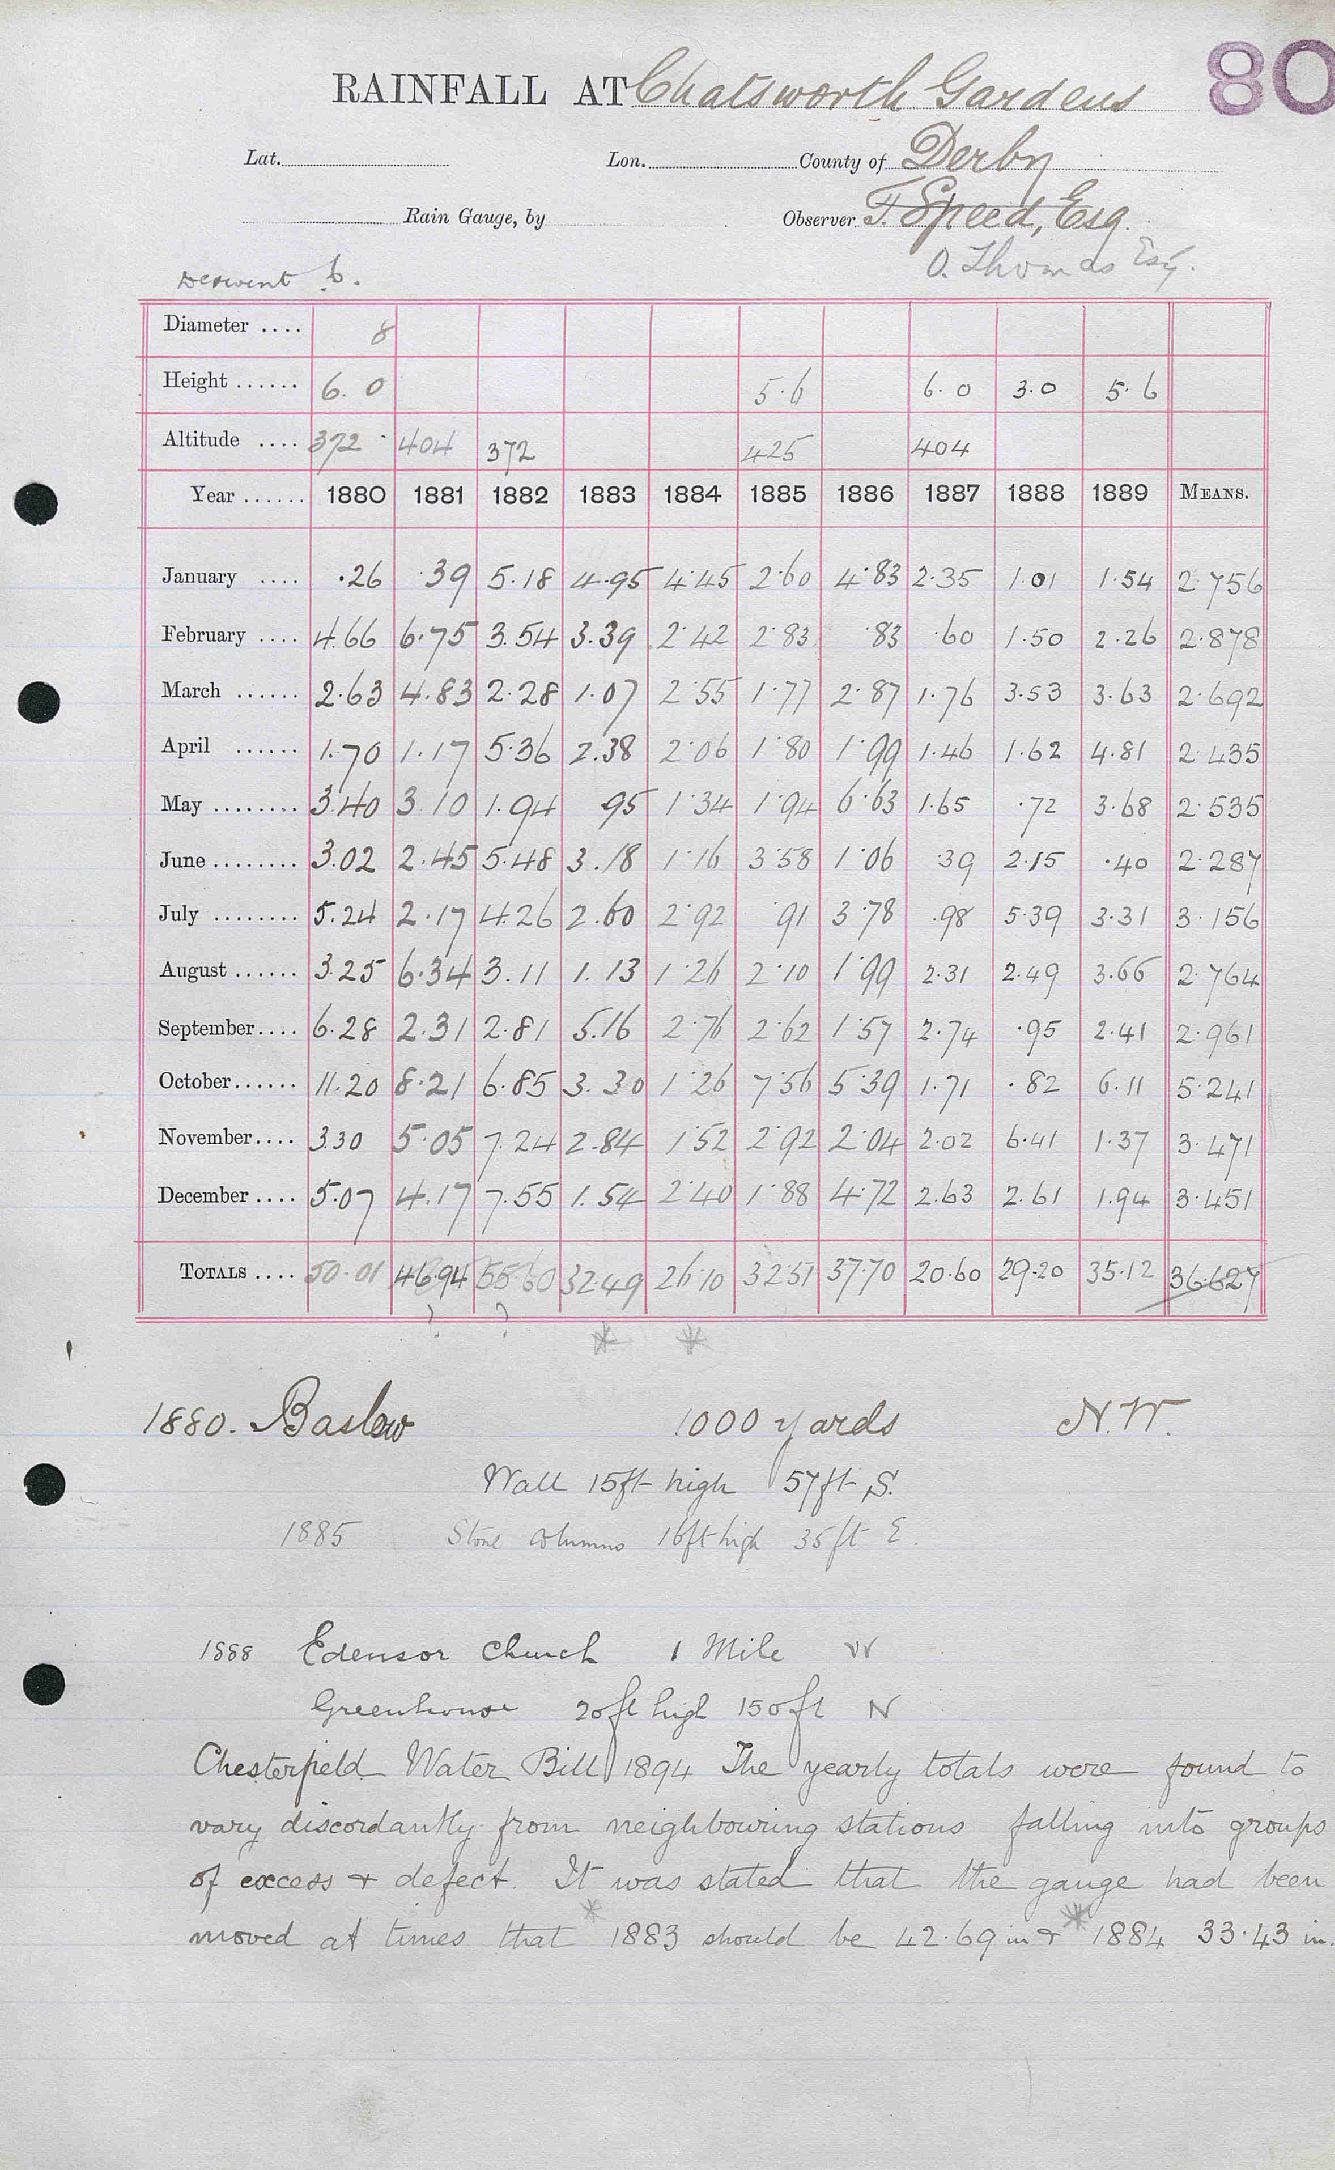 80
RAINFALL AT Chatsworth Gardens
Lat. Lon. County of Derby
Rain Gauge, by Observer T. Speed, Esq.
Derwent 6. O. Thomas Esq.
Diameter .... 8
Height ...... 6.0 5.6 6.0 3.0 5.6
Altitude .... 372 404 372 425 404
Year ...... 1880 1881 1882 1883 1884 1885 1886 1887 1888 1889 MEANS.
January .... .26 .39 5.18 4.95 4.45 2.60 4.83 2.35 1.01 1.54 2.756
February .... 4.66 6.75 3.54 3.39 2.42 2.83 .83 .60 1.50 2.26 2.878
March ...... 2.63 4.83 2.28 1.07 2.55 1.77 2.87 1.76 3.53 3.63 2.692
April ...... 1.70 1.17 5.36 2.38 2.06 1.80 1.99 1.46 1.62 4.81 2.435
May ........ 3.40 3.10 1.94 95 1.34 1.94 6.63 1.65 .72 3.68 2.535
June ........ 3.02 2.45 5.48 3.18 1.16 3.58 1.06 .39 2.15 .40 2.287
July ........ 5.24 2.17 4.26 2.60 2.92 .91 3.78 .98 5.39 3.31 3.156
August ...... 3.25 6.34 3.11 1.13 1.26 2.10 1.99 2.31 2.49 3.66 2.764
September.... 6.28 2.31 2.81 5.16 2.76 2.62 1.57 2.74 .95 2.41 2.961
October...... 11.20 8.21 6.85 3.30 1.26 7.56 5.39 1.71 .82 6.11 5.241
November.... 3.30 5.05 7.24 2.84 1.52 2.92 2.04 2.02 6.41 1.37 3.471
December .... 5.07 4.17 7.55 1.54 2.40 1.88 4.72 2.63 2.61 1.94 3.451
TOTALS .... 50.01 46.94 55.60 32.49 26.10 32.51 37.70 20.60 29.20 35.12 36.627
? ? * *
1880. Baslow 1000 yards N.W.
Wall 15ft high 57ft S.
1885 Stone columns 16ft high 35ft E.
1888 Edensor Church 1 Mile W
Greenhouse 20ft high 150ft N
Chesterfield Water Bill 1894 The yearly totals were found to
vary discordantly from neighbouring stations falling into groups
of excess & defect. It was stated that the gauge had been
moved at times that * 1883 should be 42.69 in & * 1884 33.43 in.